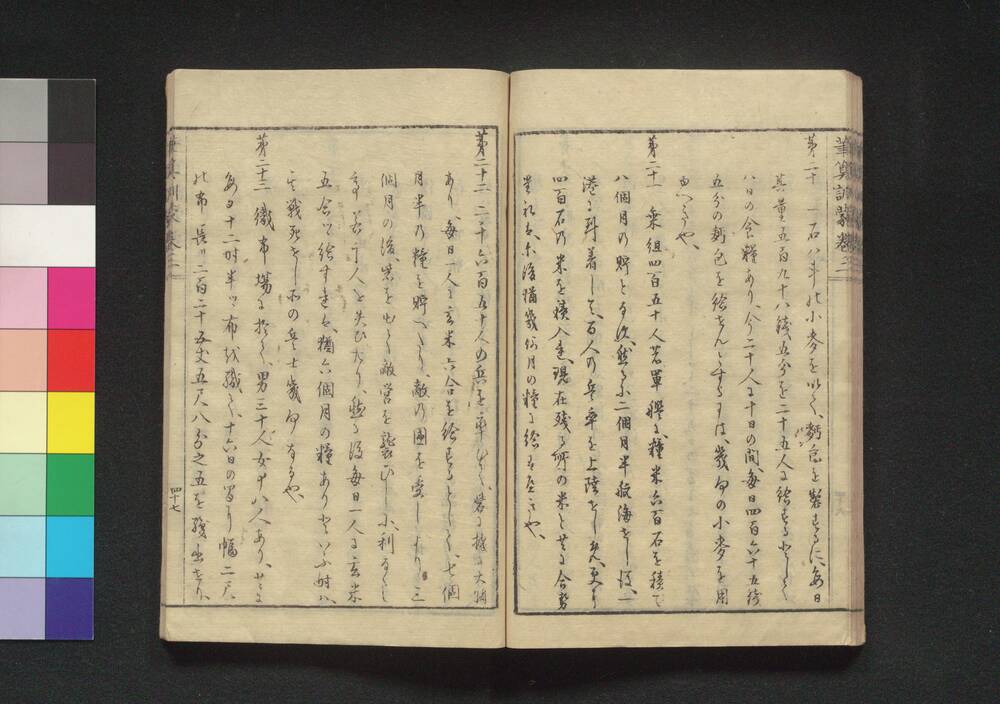 筆算訓蒙巻之二
第二十 一石八斗の小麥を以て、麪包を製するに、毎日
其量五百九十八錢五分を二十五人に給するとして
八日の食糧あり、今二十人に十日の間、毎日四百六十五錢
五分の麪包を給せんとするには、幾何の小麥を用
ゆべきや、
第二十一 乗組四百五十人の軍艦に、糧米六百石を積て
八個月の貯となす、然るに二個月半航海をし後、一
港に到着して、百人の兵卒を上陸をしめ、更に
四百石の米を積入たり、現在残る所の米と共に合せ
是れは、後猶幾何月の糧に給すべきや、
第二十二 二千六百五十人の兵を率ひて、砦に據る大將
あり、毎日一人に玄米六合を給するとして、七個
月半の糧を貯へたり、敵の圍を受しより三
個月の後、砦を出て敵營を襲ひし小利なくして
若干人を失ひたり、然る後毎日一人に玄米
五合を給すれば、猶六個月の糧ありといふ時は、
戰死せし所の兵士幾何なるや、
第二十三 織布場に於て、男三十人女十八人あり、共に
毎日十二時半づゝ布を織て、十六日の間に幅二尺
の布長サ二百二十五丈五尺八分之五を織出せり、
四十七
筆算訓蒙巻之二